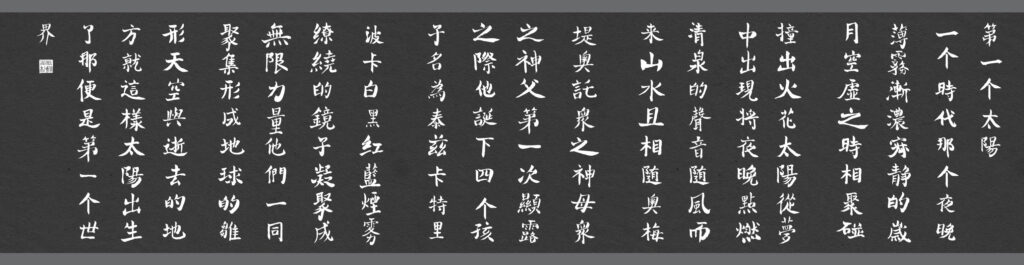 第一个太陽
一个時代那个夜晚
薄霧漸濃寂静的歲
月空虛之時相聚碰
撞出火花太陽從夢
中出現将夜晚點燃
清泉的聲音随風而
来山水且相随奧梅
堤奧託衆之神母衆
之神父第一次顯露
之際他誕下四个孩
子名為泰兹卡特里
波卡白黑紅藍煙雾
繚繞的鏡子凝聚成
無限力量他們一同
聚集形成地球的雛
形天空與逝去的地
方就這樣太陽出生
了那便是第一个世
界